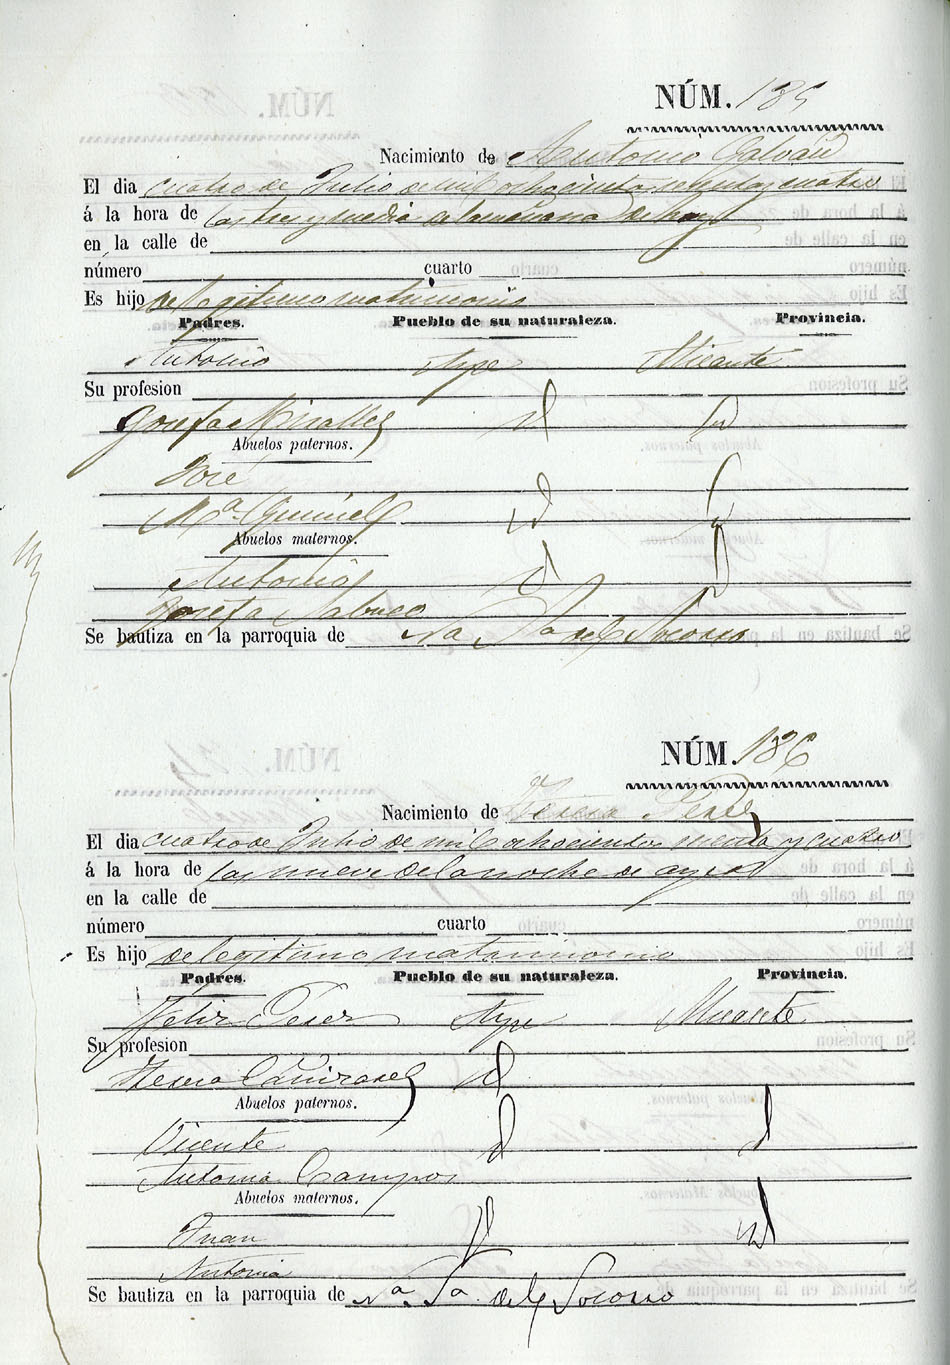 NÚM. 185
Nacimiento de Antonio Galvañ
El dia cuatro de Julio de mil ochociento setenta y cuatro
á la hora de las tres y media de la mañana de hoy
en la calle de
número cuarto
Es hijo de legitimo matrimonio
Padres. Pueblo de su naturaleza. Provincia.
Antonio Aspe Alicante
Su profesion
Josefa Miralles id id
Abuelos paternos.
José
Mª id
Abuelos maternos.
Antonio id
Josefa
Se bautiza en la parroquia de Nª Sª del Socorro
NÚM. 186
Nacimiento de Teresa Perez
El dia cuatro de Julio de mil ochocientos setenta y cuatro
á la hora de las nueve de la noche de ayer
en la calle de
número cuarto
Es hijo de legitimo matrimonio
Padres. Pueblo de su naturaleza. Provincia.
Felix Perez Aspe Alicante
Su profesion
Teresa Cañizares id
Abuelos paternos.
Vicente id id
Antonia Campos
Abuelos maternos.
Juan id id
Antonia
Se bautiza en la parroquia de Nª Sª del Socorro